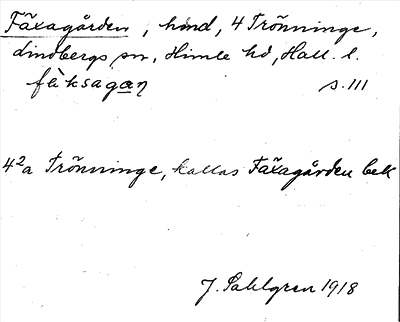 Fäxagården, hmd, 4 Trönninge,
Lindbergs sn, Himle hd, Hall. l.
fäksagaṇ s. 111
4²a Trönninge, kallas Fäxagården bek
J. Sahlgren 1918